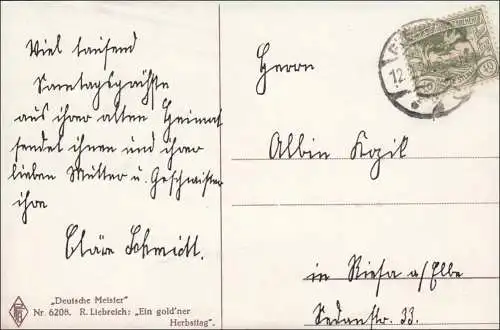 Viel tausend
Sonntagsgrüße
aus ihrer alten Heimat
sendet ihnen und ihrer
lieben Mutter u. Geschwister
ihre
Cläre Schmidt.
Herrn
Albin Kozik
in Riesa a/Elbe
Sedanstr. 33.
„Deutsche Meister"
Nr. 6208. R. Liebreich: „Ein gold'ner
Herbsttag".